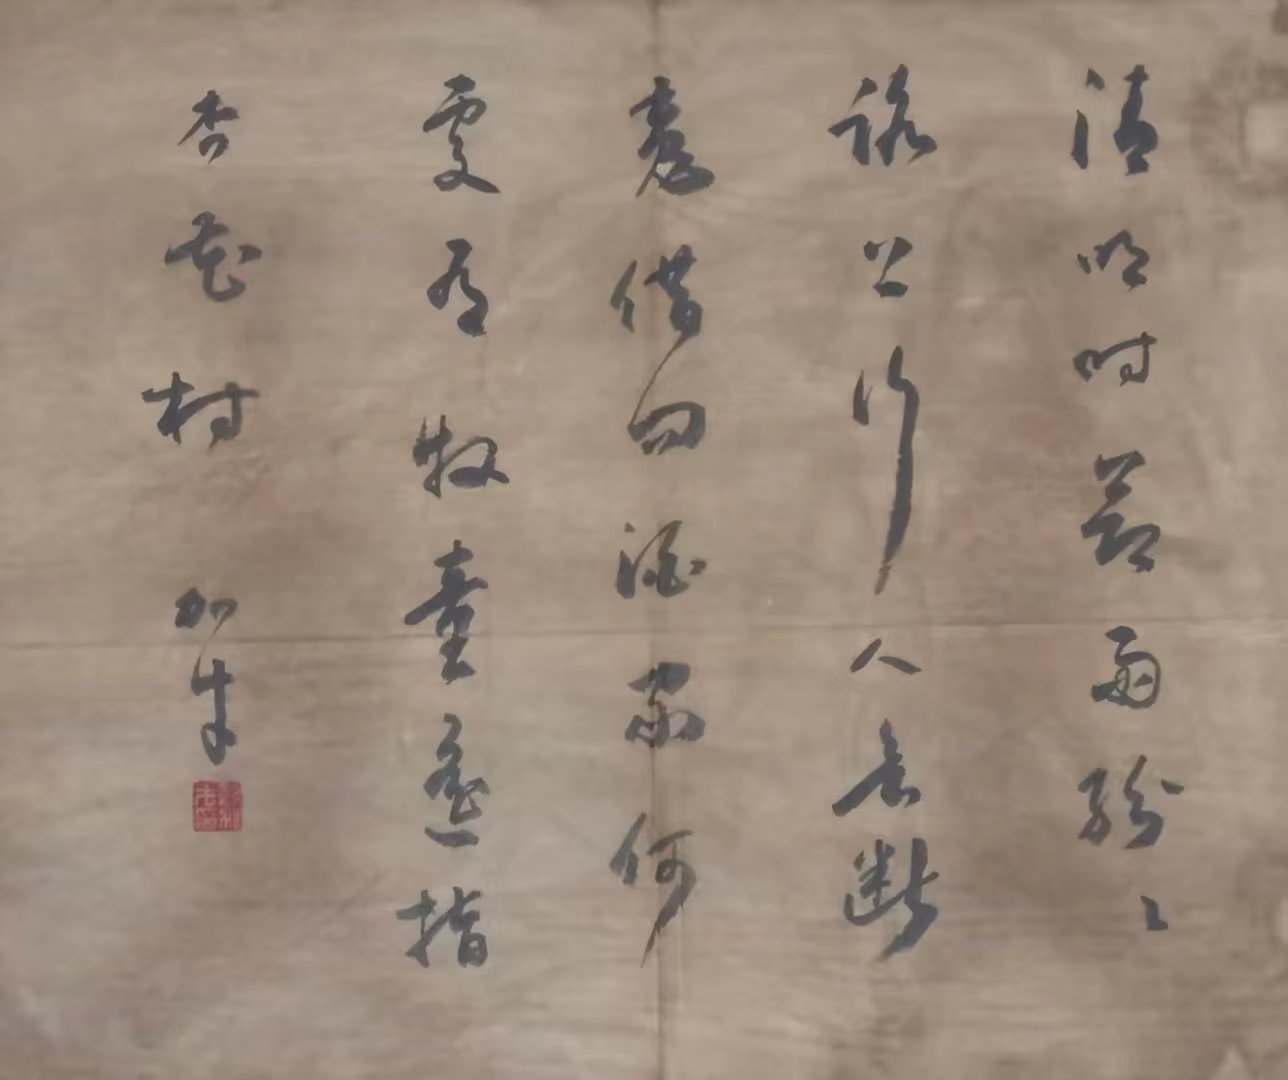 清明時節雨紛々
路上行人欲斷
魂借問酒家何
處有牧童遙指
杏花村